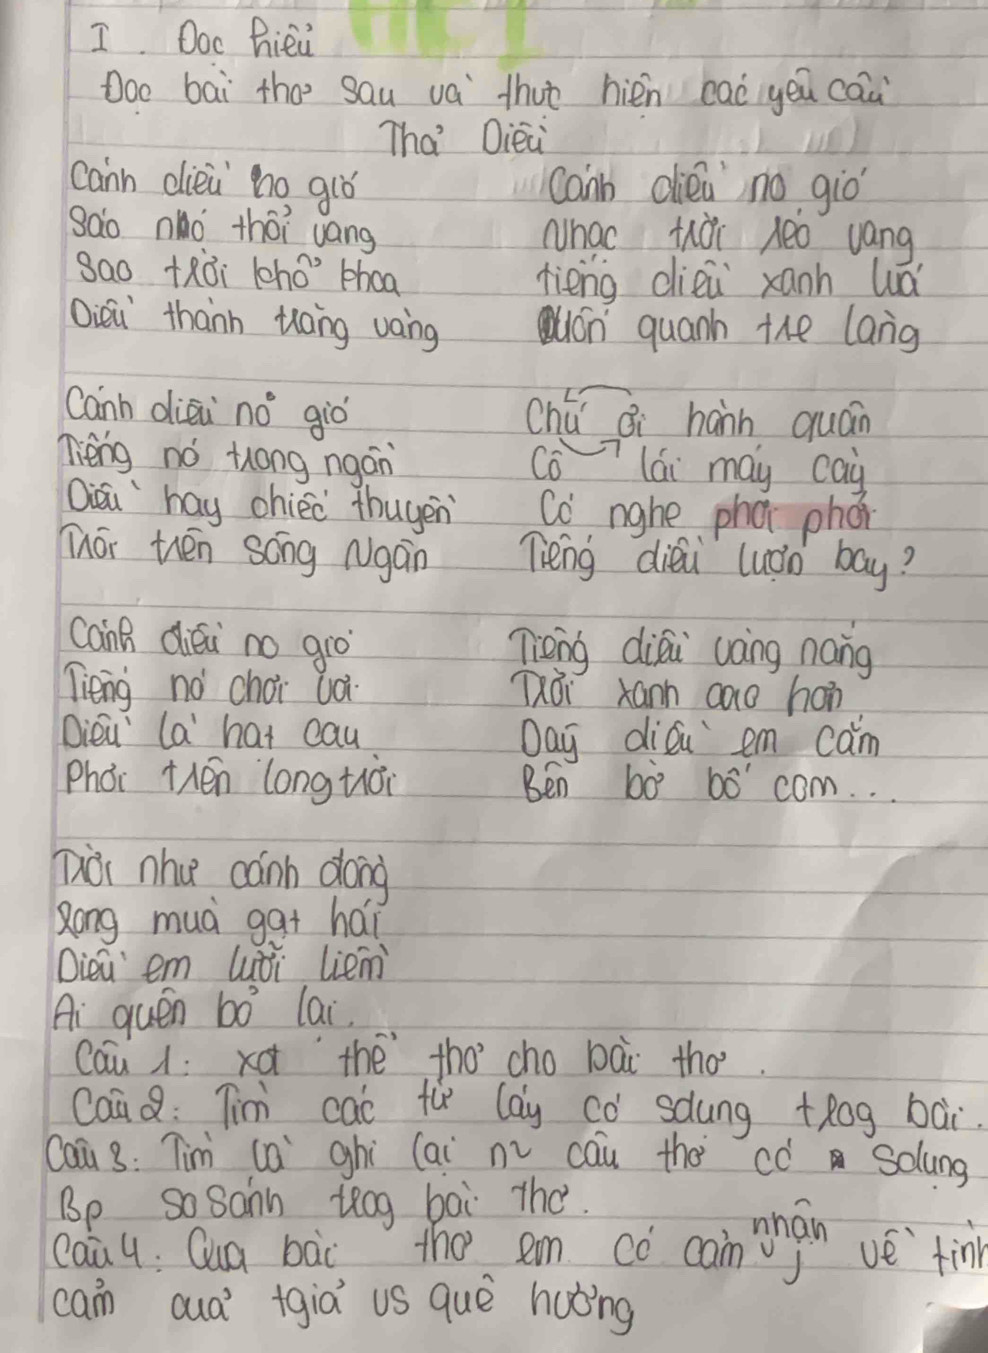 I. Đọc hiểu
Đọc bài thơ sau và thực hiện các yêu cầu
Thả Diều
Cánh diều no gió
Sáo nhó thổi vang
Sao trời khổ khoa
Diều thành trăng vàng
Cánh diều nỏ gió
Tiếng nó trong ngần
Diều hay chiếc thuyền
Trôi trên sông Ngân
Cánh diều no gió
Tiếng nó chơi vơi
Diều là hạt cau
Phơi trên longtrời
Trời như cánh đồng
Xong mùa gặt hái
Diều em lưỡi liềm
Ai quên bỏ lại.
Cánh diều no gió
Nhạc trời réo vang
tiếng diều xanh lúa
Uốn quanh tre làng
Chú ơi hành quân
Cô lái máy cày
Có nghe phơi phới
Tiếng diều lượn bay?
Tiếng diều vàng nắng
Trời xanh cao hơn
Dây diều em cắm
Bên bờ bố com...
Câu 1: xđ thể thơ cho bài thơ.
Câu 2: Tìm các từ láy có sdụng trog bài.
Câu 3: Tìm và ghi lại n~ câu thơ có sdụng
Bp so sánh trog bài thơ.
Câu 4: Qua bài thơ em có cảm nhận j về tình
cảm của tgiả vs quê hương